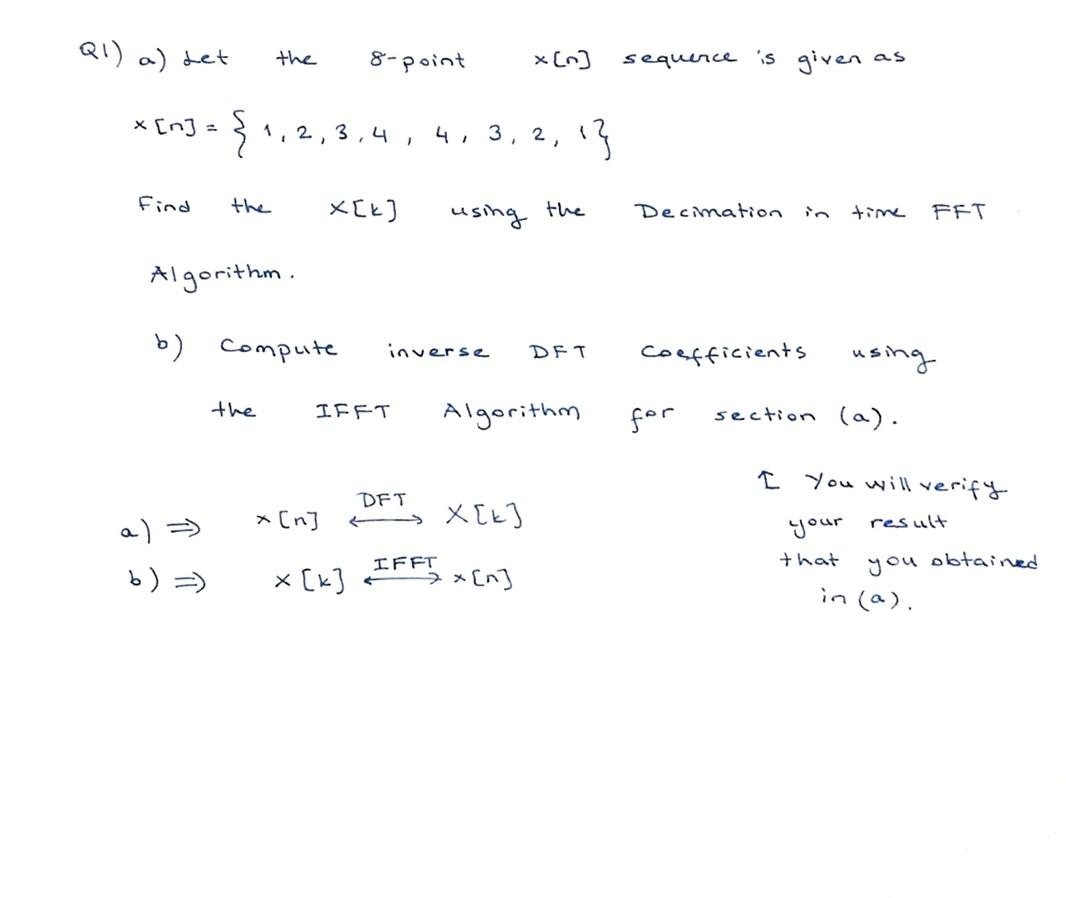 Q1) a) Let the 8-point x[n] sequence is given as
x[n] = { 1, 2, 3, 4, 4, 3, 2, 1}
Find the X[k] using the Decimation in time FFT
Algorithm.
b) Compute inverse DFT coefficients using
the IFFT Algorithm for section (a).
↑ You will verify
your result
that you obtained
in (a).
a) ⇒ x[n] ⟷ DFT X[k]
b) ⇒ x[k] ⟷ IFFT x[n]